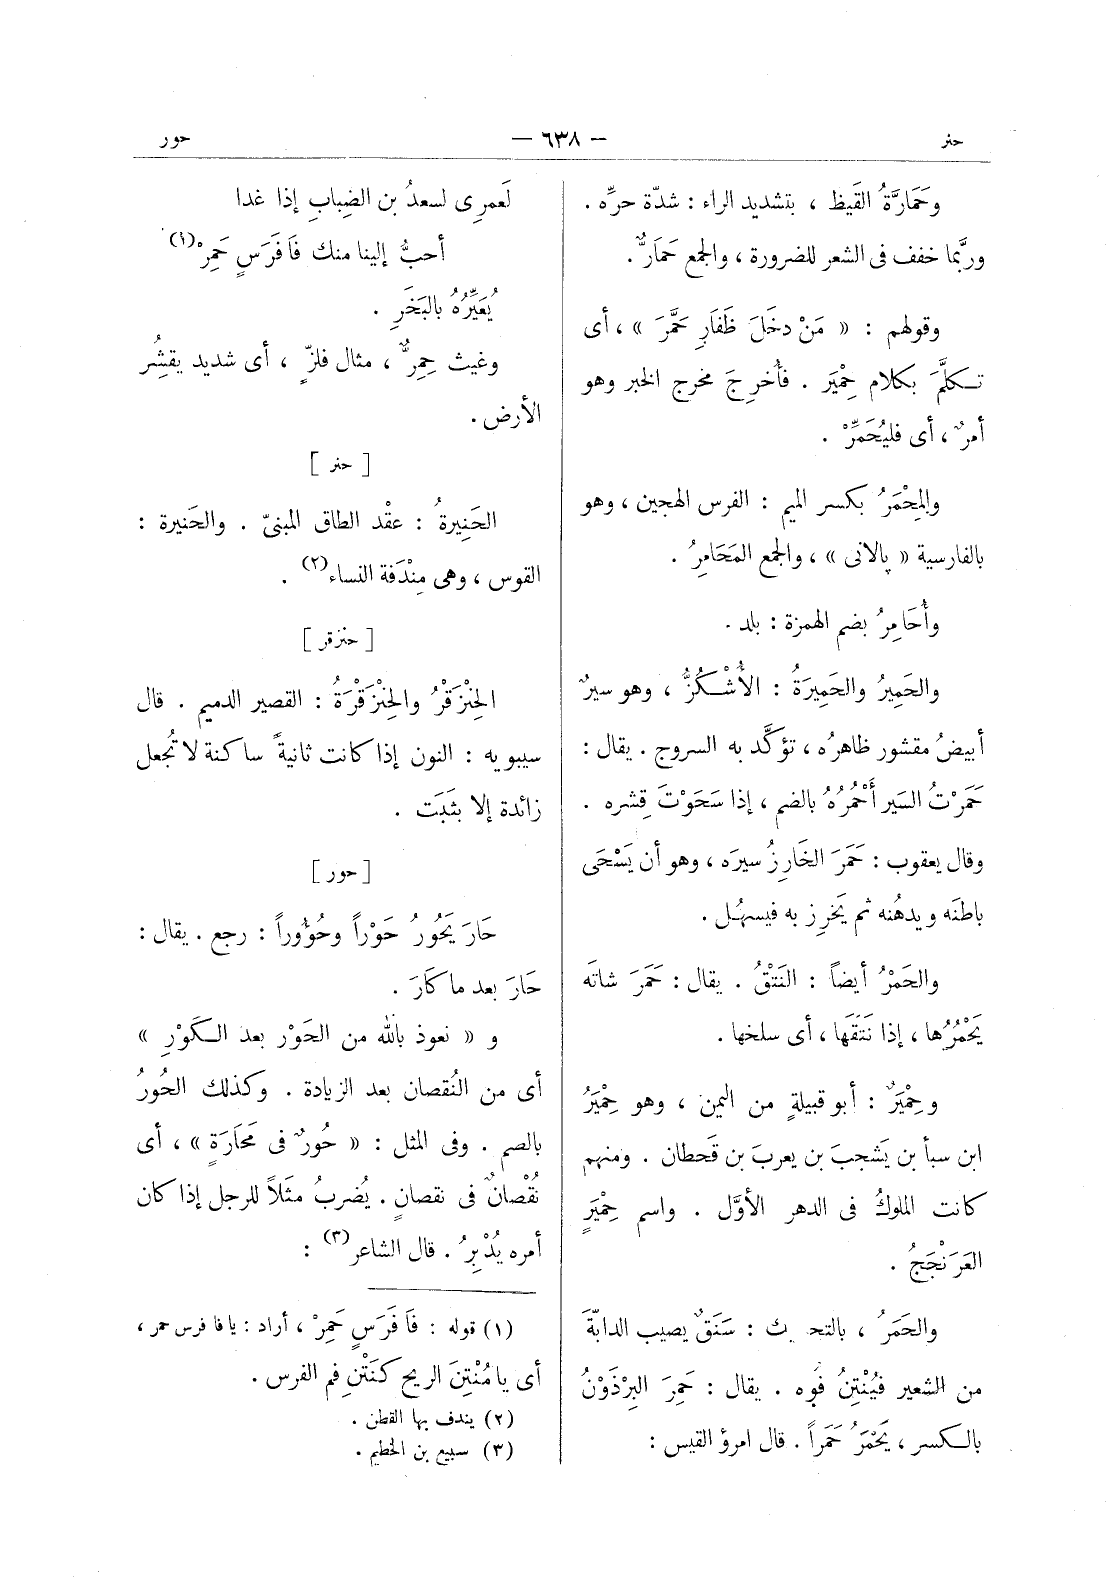 حنر
— ٦٣٨ —
حور
وحَمَارَّةُ القَيظ ، بتشديد الراء : شدّة حرِّه .
وربَّما خفف فى الشعر للضرورة ، والجمع حَمَارٌّ .
وقولهم : « مَنْ دخَلَ ظَفَارِ حَمَّرَ » ، أى
تكلَّمَ بكلام حِمْيَر . فأُخرِجَ مخرج الخبر وهو
أمرٌ ، أى فليُحَمِّرْ .
والمِحْمَرُ بكسر الميم : الفرس الهجين ، وهو
بالفارسية « پالانى » ، والجمع المَحَامِرُ .
وأُحَامِرُ بضم الهمزة : بلد .
والحَمِيرُ والحَمِيرَةُ : الأُشْكُزُّ ، وهو سيرٌ
أبيضُ مقشور ظاهرُه ، تؤكَّد به السروج . يقال :
حَمَرْتُ السَير أَحْمُرُهُ بالضم ، إذا سَحَوْتَ قِشره .
وقال يعقوب : حَمَرَ الخَارِزُ سيرَه ، وهو أن يَسْحَى
باطنَه ويدهُنه ثم يَخرِز به فيسهُل .
والحَمْرُ أيضاً : النَتْقُ . يقال : حَمَرَ شاتَه
يَحْمُرُها ، إذا نَتَقَها ، أى سلخها .
وحِمْيَرٌ : أبو قبيلةٍ من اليمن ، وهو حِمْيَرُ
ابن سبأ بن يَشجبَ بن يعربَ بن قَحطان . ومنهم
كانت الملوكُ فى الدهر الأوَّل . واسم حِمْيَرٍ
العَرَنْجَجُ .
والحَمَرُ ، بالتحـ ـك : سَنَقٌ يصيب الدابّةَ
من الشعير فيُنْتِنُ فُوه . يقال : حَمِرَ البِرْذَوْنُ
بالكسر ، يَحْمَرُ حَمَراً . قال امرؤ القيس :
لَعمرِى لسعدُ بن الضِبابِ إذا غدا
أحبُّ إلينا منك فَا فَرَسٍ حَمِرْ (١)
يُعَيِّرُهُ بالبَخَرِ .
وغيث حِمِرٌّ ، مثال فلزٍّ ، أى شديد يقشُِر
الأرض .
[ حنر ]
الحَنِيرةُ : عقْد الطاق المبنىّ . والحَنيرة :
القوس ، وهى مِنْدَفة النساء (٢) .
[ حنزقر ]
الحِنْزَقْرُ والحِنْزَقْرَةُ : القصير الدميم . قال
سيبويه : النون إذا كانت ثانيةً ساكنة لا تُجعل
زائدة إلا بثَبَت .
[ حور ]
حَارَ يَحُورُ حَوْراً وحُؤُوراً : رجع . يقال :
حَارَ بعد ما كَارَ .
و « نعوذ بالله من الحَوْر بعد الكَوْرِ »
أى من النُقصان بعد الزيادة . وكذلك الحُورُ
بالصم . وفى المثل : « حُورٌ فى مَحَارَةٍ » ، أى
نُقْصانٌ فى نقصانٍ . يُضربُ مثَلاً للرجل إذا كان
أمره يُدْبِرُ . قال الشاعر (٣) :
(١) قوله : فَا فَرَسٍ حَمِرْ ، أراد : يا فا فرس حمر ،
أى يا مُنْتِنَ الريح كنَتْنِ فم الفرس .
(٢) يندف بها القطن .
(٣) سبيع بن الخطيم .